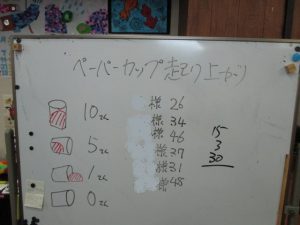 ペーパーカップ走り上がり
10てん
5てん
1てん
0てん
様 26
様 34
様 46
様 37
様 31
様 48
15
3
30